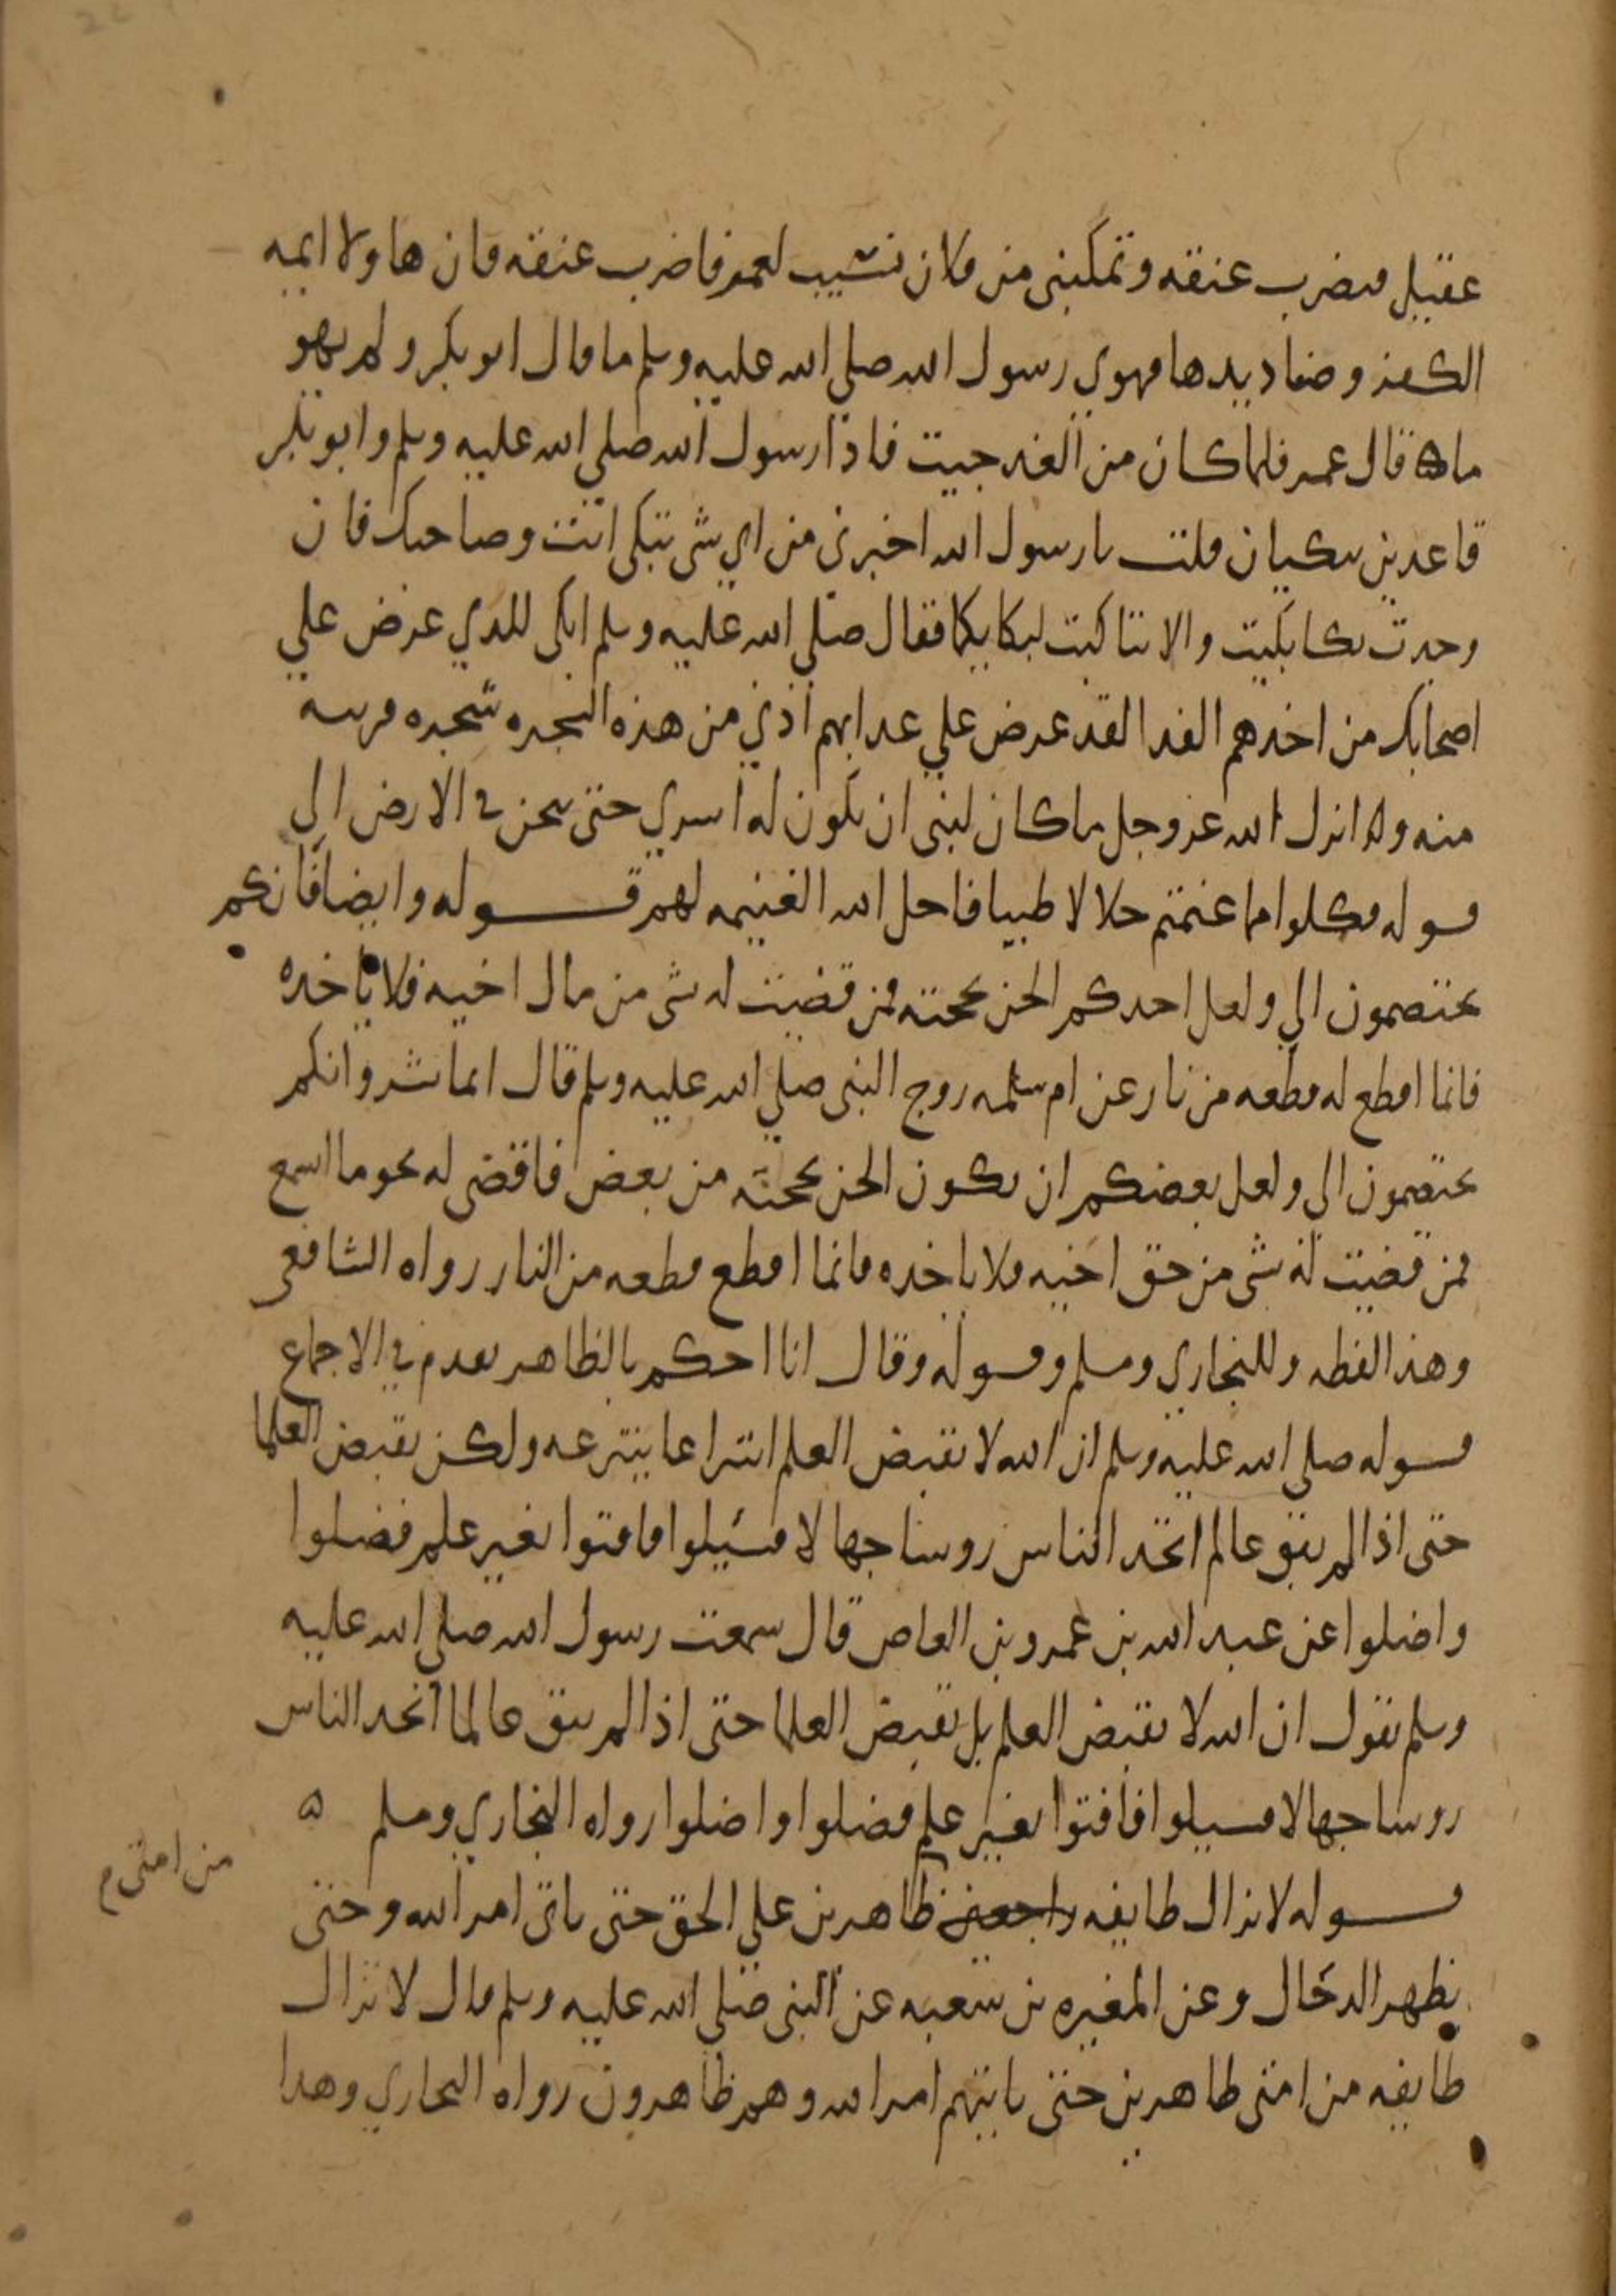 عقيل فيضرب عنقه وتمكنني من فلان نسيب لعمر فاضرب عنقه فان هاولا ايمه
الكفر وصناديدها فهوى رسول الله صلي الله عليه وسلم ما قال ابو بكر ولم يهو
ما قال عمر فلما كان من الغد جيت فاذا رسول الله صلي الله عليه وسلم وابو بكر
قاعدين يبكيان فقلت يا رسول الله اخبرني من اي شي تبكي انت وصاحبك فان
وجدت بكا بكيت والا تباكيت لبكايكما فقال صلي الله عليه وسلم ابكي للذي عرض علي
اصحابك من اخذهم الفدا لقد عرض علي عذابهم اذني من هذه الشجره شجره قريبه
منه وانزل الله عز وجل ما كان لنبي ان تكون له اسري حتى يثخن في الارض الي
قوله فكلوا مما غنمتم حلالا طيبا فاحل الله الغنيمه لهم قوله وايضا فانكم
تختصمون الي ولعل احدكم الحن بحجته فمن قضيت له بشي من مال اخيه فلا ياخذه
فانما اقطع له قطعه من نار عن ام سلمه زوج النبي صلي الله عليه وسلم قال انما بشر وانكم
تختصمون الي ولعل بعضكم ان يكون الحن بحجته من بعض فاقضي له نحو ما اسمع
فمن قضيت له بشي من حق اخيه فلا ياخذه فانما اقطع قطعه من النار رواه الشافعي
وهذا لفظه وللبخاري ومسلم وقوله وقال انا احكم بالظاهر تقدم في الاجماع
قوله صلي الله عليه وسلم ان الله لا يقبض العلم انتزاعا ينتزعه ولكن يقبض العلما
حتى اذا لم يبق عالم اتخذ الناس روسا جهالا فسيلوا فافتوا بغير علم فضلوا
واضلوا عن عبد الله بن عمرو بن العاص قال سمعت رسول الله صلي الله عليه
وسلم يقول ان الله لا يقبض العلم بل يقبض العلما حتى اذا لم يبق عالما اتخذ الناس
روسا جهالا فسيلوا فافتوا بغير علم فضلوا واضلوا رواه البخاري ومسلم ه
قوله لا تزال طايفه راجعين ظاهرين علي الحق حتى ياتي امر الله وحتى
من امتي م
يظهر الدجال وعن المغيره بن شعبه عن النبي صلي الله عليه وسلم قال لا تزال
طايفه من امتي ظاهرين حتى ياتيهم امر الله وهم ظاهرون رواه البخاري وهذا